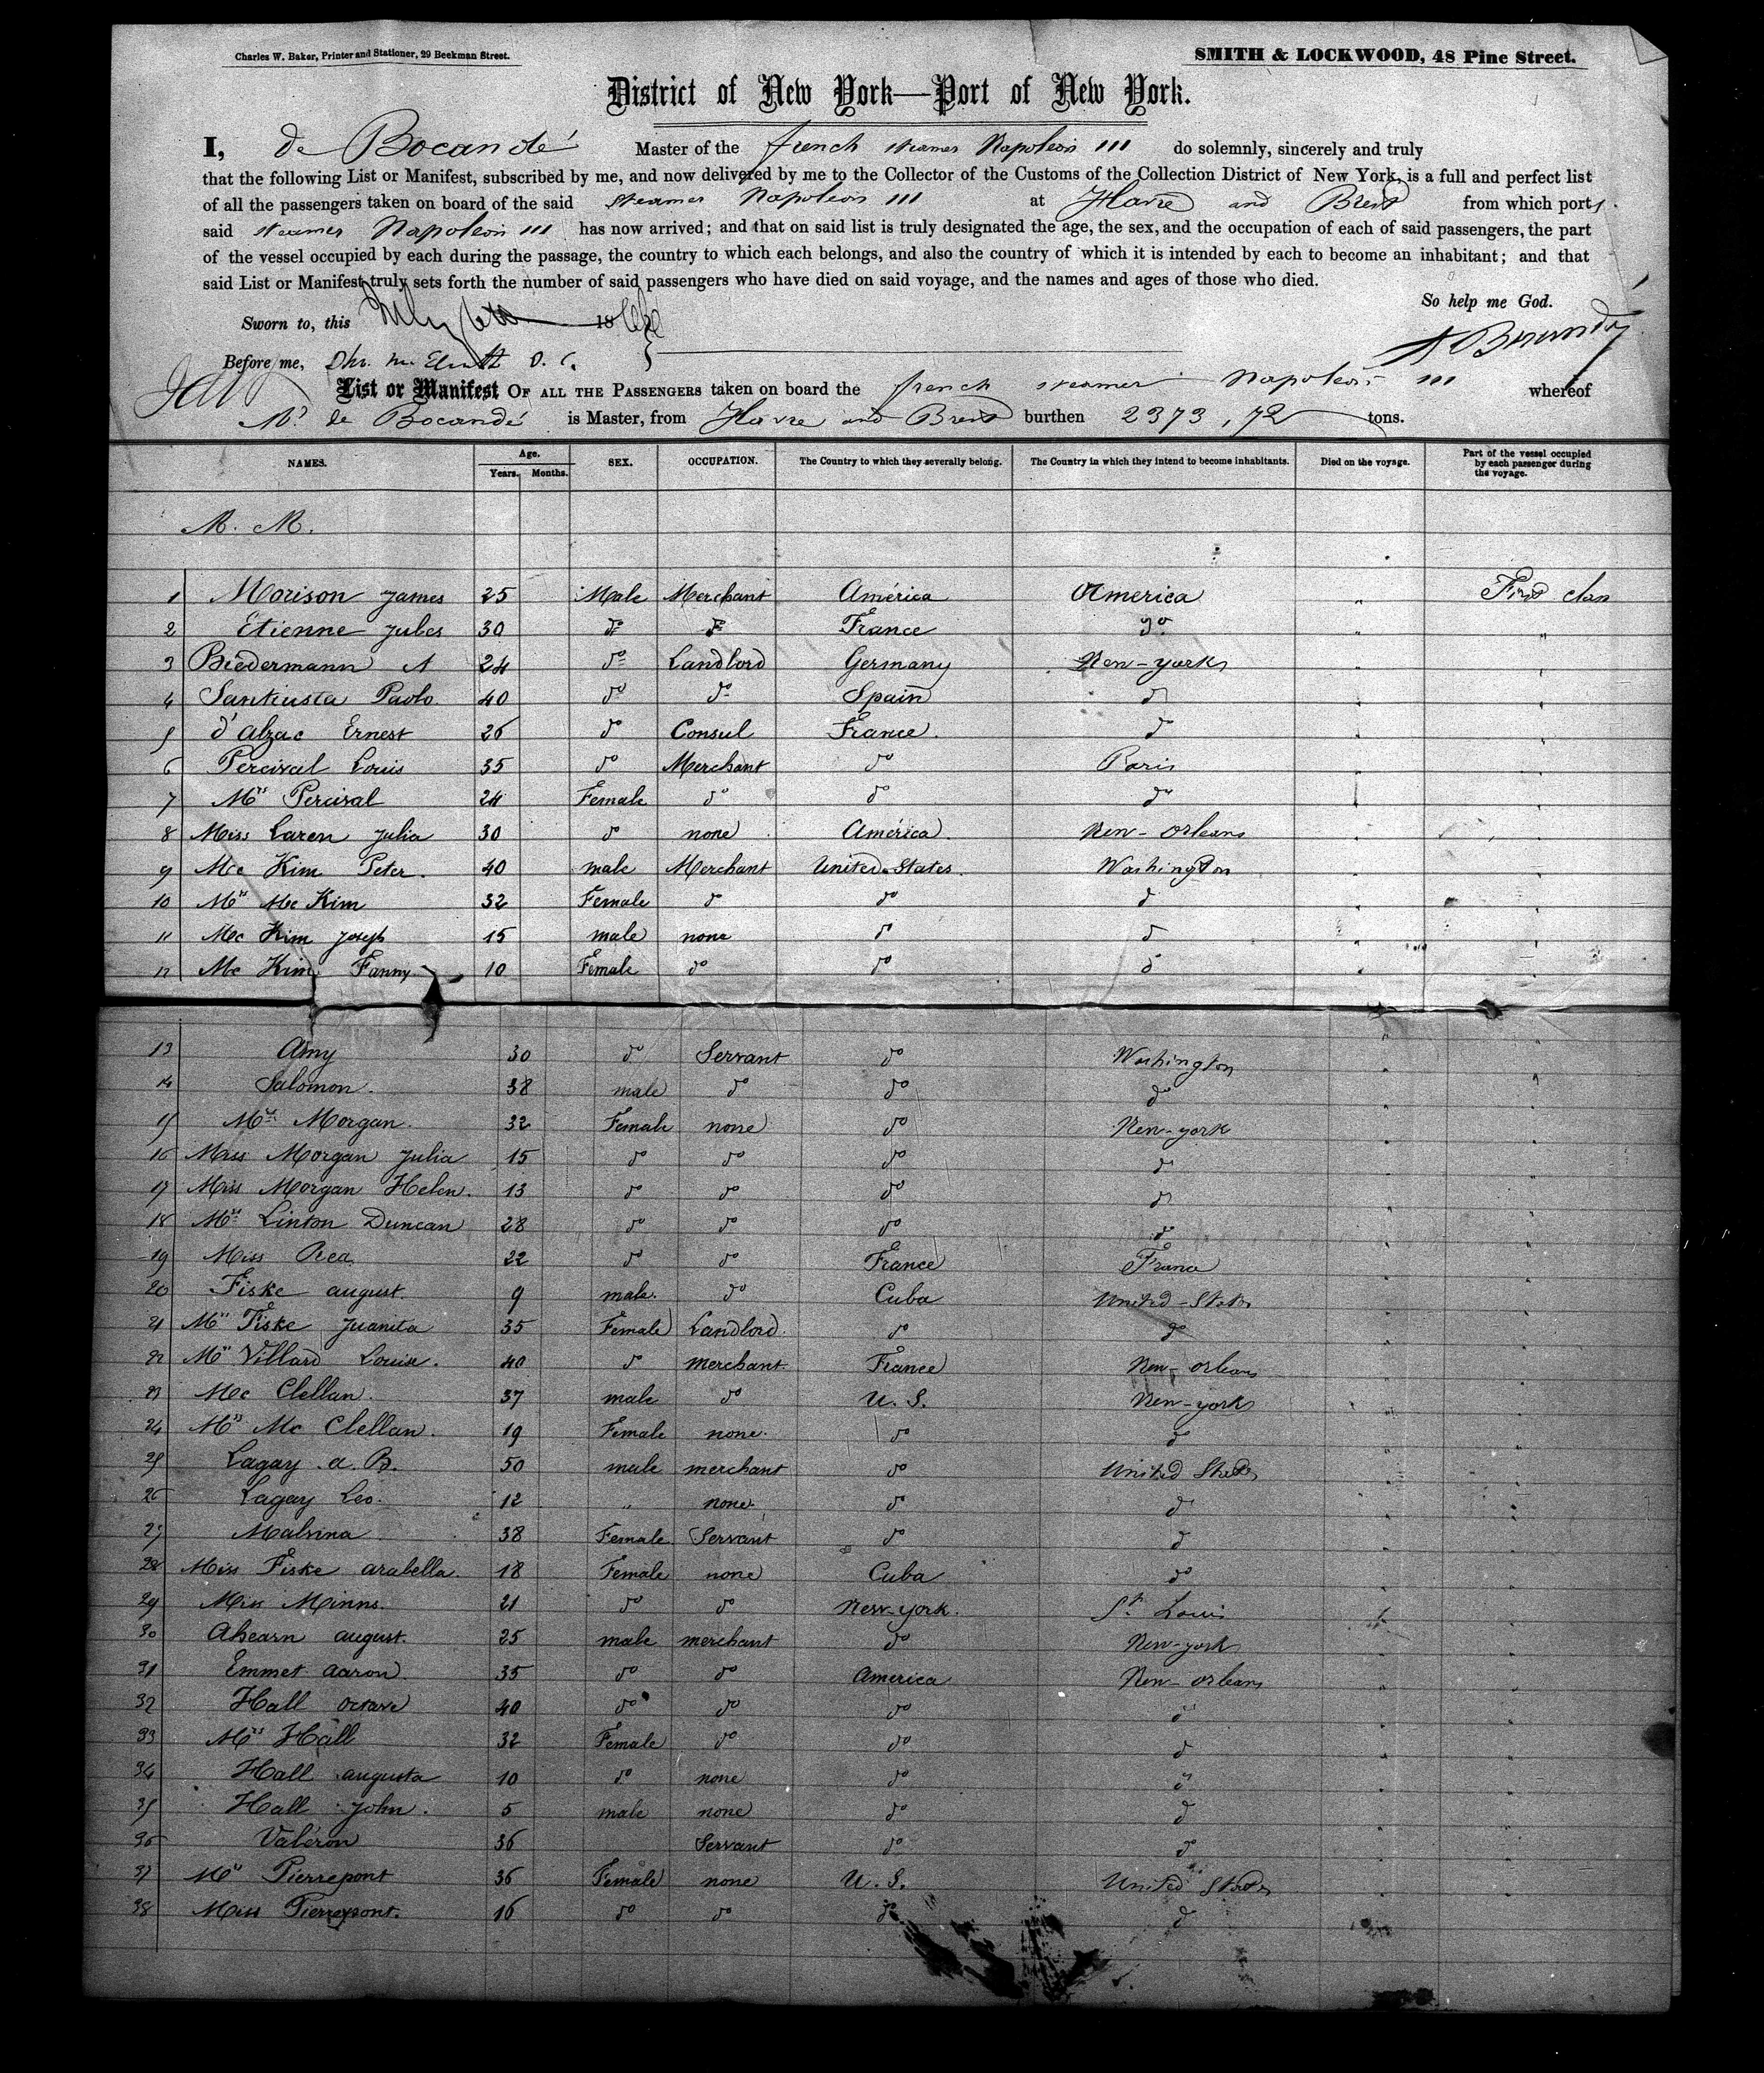 Charles W. Baker, Printer and Stationer, 29 Beekman Street.
SMITH & LOCKWOOD, 48 Pine Street.
District of New York—Port of New York.
I, de Bocandé Master of the french steamer Napoleon III do solemnly, sincerely and truly
that the following List or Manifest, subscribed by me, and now delivered by me to the Collector of the Customs of the Collection District of New York, is a full and perfect list
of all the passengers taken on board of the said steamer Napoleon III at Havre and Brest from which ports
said steamer Napoleon III has now arrived; and that on said list is truly designated the age, the sex, and the occupation of each of said passengers, the part
of the vessel occupied by each during the passage, the country to which each belongs, and also the country of which it is intended by each to become an inhabitant; and that
said List or Manifest truly sets forth the number of said passengers who have died on said voyage, and the names and ages of those who died.
So help me God.
Sworn to, this July 1866
Before me, D. C.
List or Manifest OF ALL THE PASSENGERS taken on board the french steamer Napoleon III whereof
Mr de Bocandé is Master, from Havre and Brest burthen 2373,72 tons.
NAMES. Age. Years. Months. SEX. OCCUPATION. The Country to which they severally belong. The Country in which they intend to become inhabitants. Died on the voyage. Part of the vessel occupied by each passenger during the voyage.
M. M.
1 Morison James 25 Male Merchant América America " First class
2 Etienne Jules 30 do do France do " "
3 Biedermann A 24 do Landlord Germany New-York " "
4 Santiusta Paolo 40 do do Spain do " "
5 d'Alzac Ernest 26 do Consul France. do " "
6 Percival Louis 35 do Merchant do Paris " "
7 Mrs Percival 24 Female do do do " "
8 Miss Laren Julia 30 do none América New-Orleans " "
9 Mc Kim Peter. 40 male Merchant United States. Washington " "
10 Mrs Mc Kim 32 Female do do do " "
11 Mc Kim Joseph 15 male none do do " "
12 Mc Kim Fanny 10 Female do do do " "
13 Amy 30 do Servant do Washington " "
14 Salomon. 38 male do do do " "
15 Mrs Morgan. 32 Female none do New-York " "
16 Miss Morgan Julia 15 do do do do " "
17 Miss Morgan Helen. 13 do do do do " "
18 Mrs Linton Duncan 28 do do do do " "
19 Miss Rea 22 do do France France " "
20 Fiske august. 9 male. do Cuba United-States " "
21 Mrs Fiske Juanita 35 Female Landlord. do do " "
22 Mrs Villard Louise. 40 do merchant France New-Orleans " "
23 Mc Clellan. 37 male do U. S. New-York " "
24 Mrs Mc Clellan. 19 Female none. do do " "
25 Lagay a. B. 50 male merchant do United States " "
26 Lagay Leo. 12 " none. do do " "
27 Malvina 38 Female Servant do do " "
28 Miss Fiske arabella. 18 Female none Cuba do " "
29 Miss Minns. 21 do do New-York. St Louis " "
30 Ahearn august. 25 male merchant do New-York " "
31 Emmet aaron 35 do do America New-Orleans " "
32 Hall octave 40 do do do do " "
33 Mrs Hall 32 Female do do do " "
34 Hall augusta 10 do none do do " "
35 Hall John. 5 male none do do " "
36 Valéron 36 Servant do do " "
37 Mrs Pierrepont 36 Female none U. S. United States " "
38 Miss Pierrepont. 16 do do do do " "